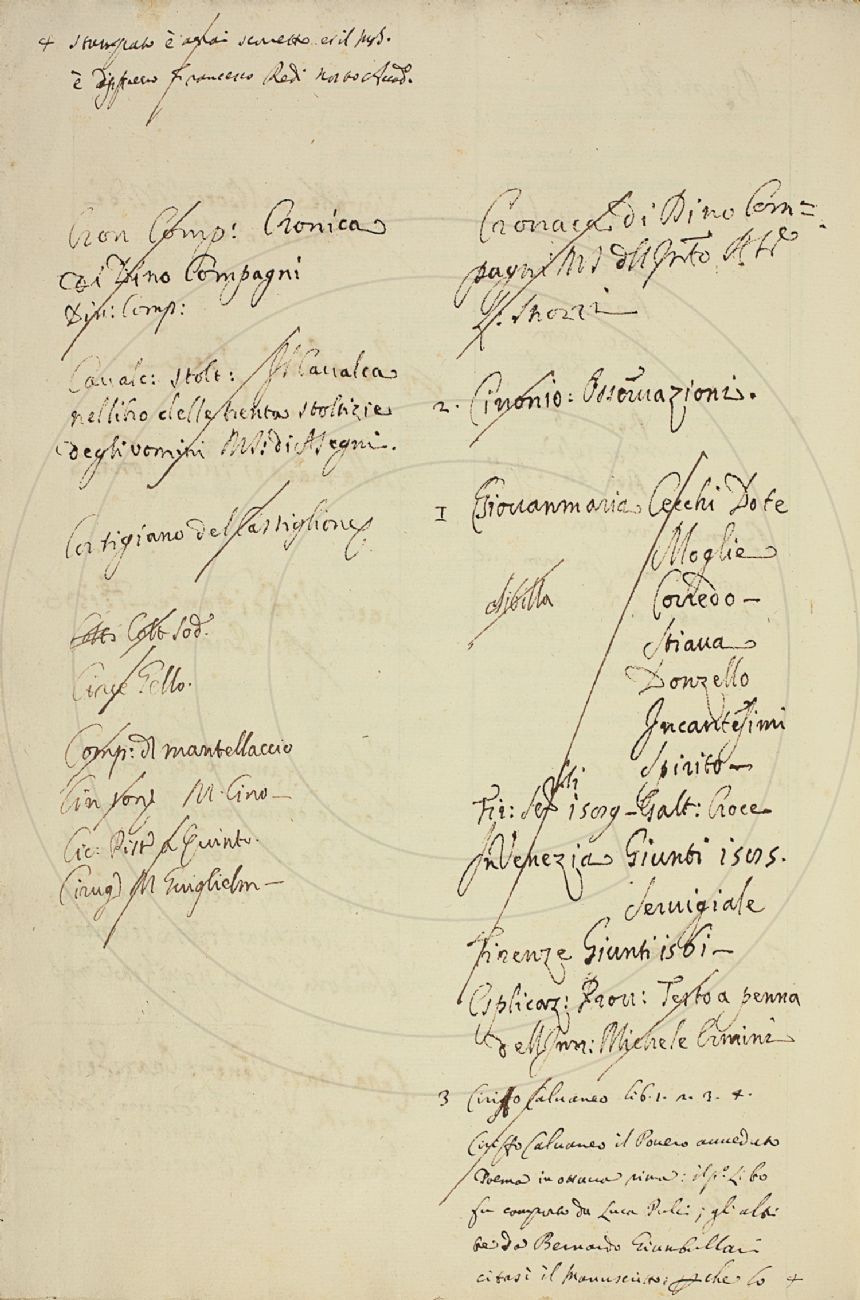 + stampato è assai scorretto, e il ms.
è appresso Francesco Redi nostro Accad.
Cron Comp: Cronica
di Dino Compagni
Din: Comp:
Cavalc: stolt: Il Cavalca
nel libro delle trenta stoltizie
degli uomini MS: di A Segni.
Cortigiano del Castiglione
Colt Sod.
Circe Gello.
Comp: del mantellaccio
Cin M. Cino —
Cic: Pist a Quinto.
Cirug M Guiglielm —
Cronaca di Dino Com=
pagni MS dell
L: Strozzi
2. Cinonio: Osservazioni.
I Giovanmaria Cecchi Dote
Moglie
Assivolo
Corredo —
Stiava
Donzello
Incantesimi
Spirito —
Fir: Galt: Croce
In Venezia Giunti 1585.
Servigiale
Firenze Giunti 1561 —
Esplicaz: Prov: Testo a penna
dell Michele Ermini
3 Ciriffo Calvaneo lib. 1. 2. 3. 4.
Ciriffo Calvaneo il Povero avveduto
Poema in ottava rima: il p.º Libo
fu composto da Luca Pulci; gli altri
tre da Bernardo Giambullari
citasi il manuscritto: che lo +